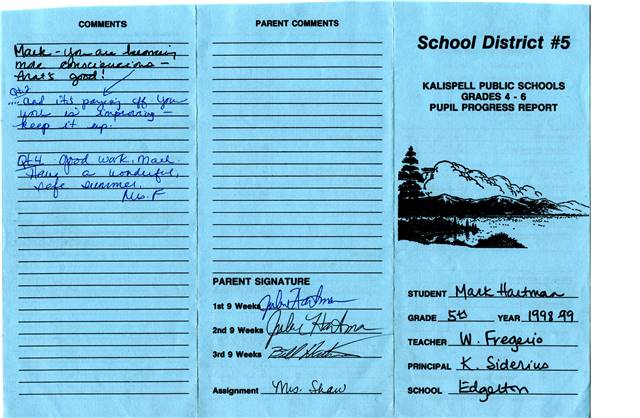 COMMENTS
Mark - you are becoming
more consciencious -
that's good!
Qt. 2
....and it's paying off you
work is improving -
keep it up.
Qt. 4 Good work, Mark.
Have a wonderful,
safe summer.
Mrs. F
PARENT COMMENTS
PARENT SIGNATURE
1st 9 Weeks Julie Hartman
2nd 9 Weeks Julie Hartman
3rd 9 Weeks Bill
Assignment Mrs. Shaw
School District #5
KALISPELL PUBLIC SCHOOLS
GRADES 4 - 6
PUPIL PROGRESS REPORT
STUDENT Mark Hartman
GRADE 5th YEAR 1998-99
TEACHER W. Fregerio
PRINCIPAL K. Siderius
SCHOOL Edgerton